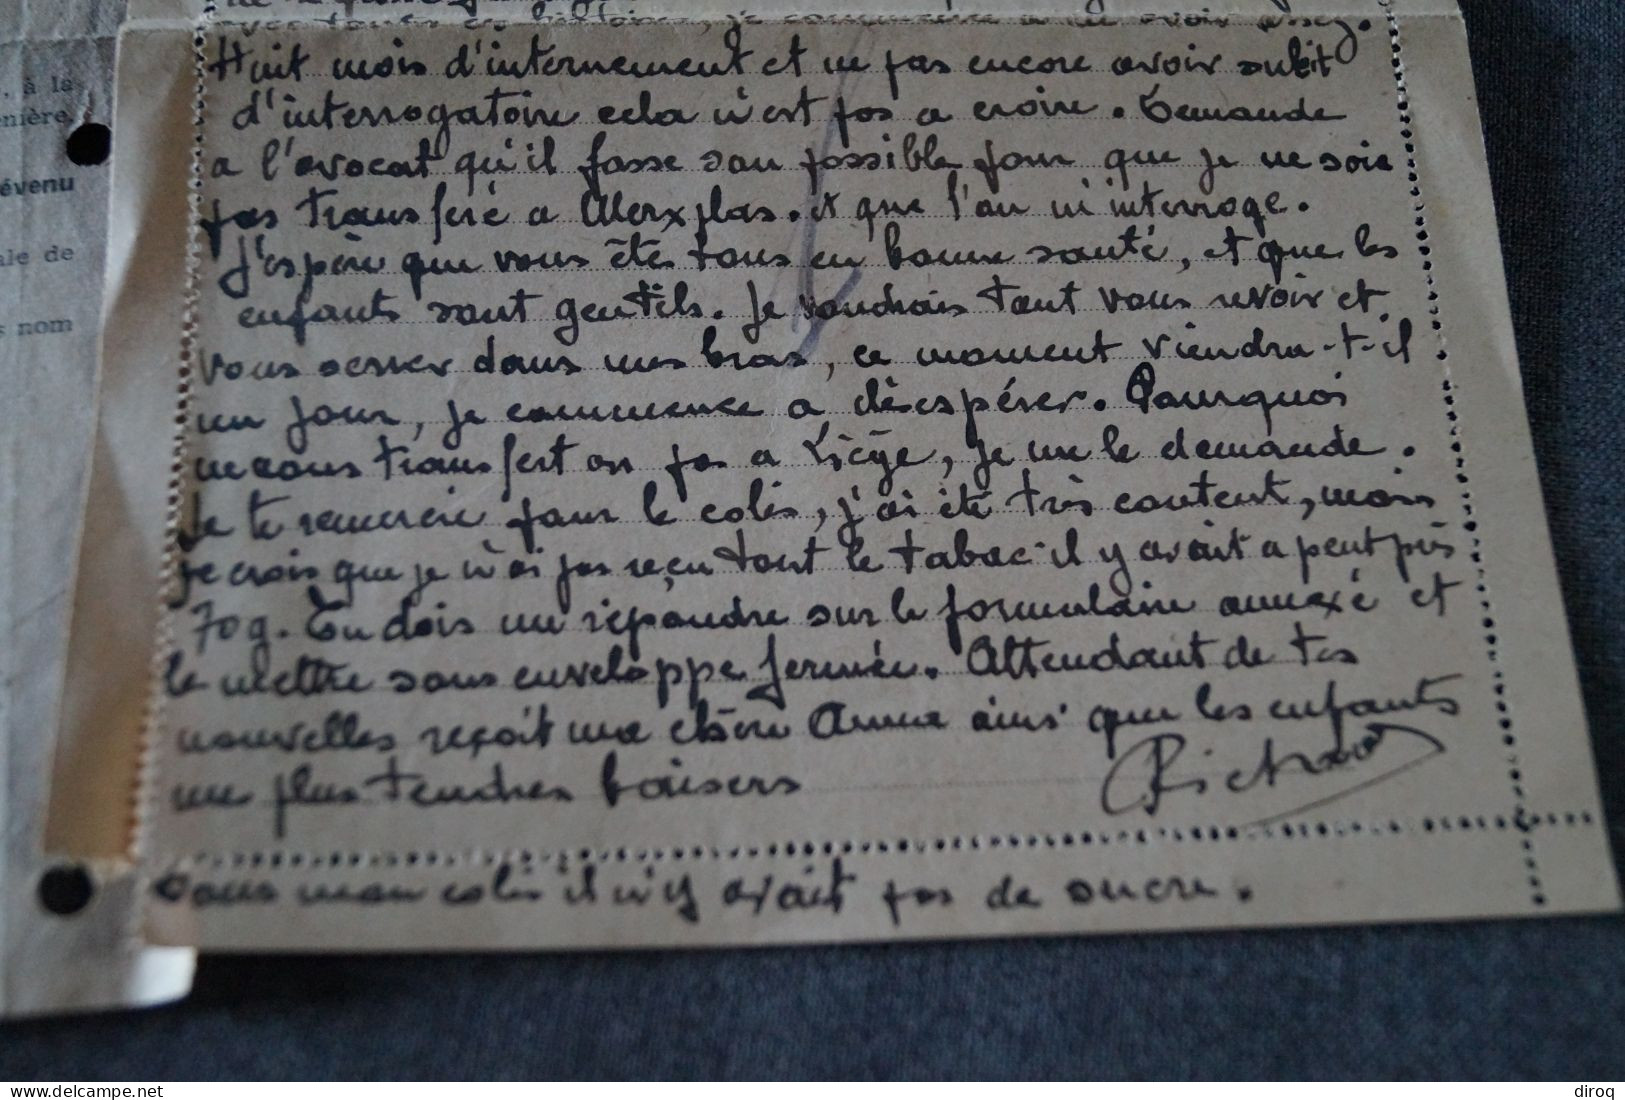 avec toutes ces histoires, je commence a en avoir assez.
Huit mois d'internement et ne pas encore avoir subit
d'interrogatoire cela n'est pas a croire. Demande
a l'avocat qu'il fasse son possible pour que je ne soie
pas transferé a Merxplas. et que l'on m'interroge.
J'espère que vous êtes tous en bonne santé, et que les
enfants sont gentils. Je voudrais tant vous revoir et
vous serrer dans mes bras, ce moment viendra-t-il
un jour, je commence a désespérer. Pourquoi
ne nous transfert on pas a Liège, je me le demande.
Je te remercie pour le colis, j'ai été très content, mais
je crois que je n'ai pas reçu tout le tabac il y avait a peut près
70g. Tu dois me répondre sur le formulaire annexé et
le mettre sous enveloppe fermée. Attendant de tes
nouvelles reçoit ma chère Anna ainsi que les enfants
mes plus tendres baisers
Richard
Dans mon colis il n'y avait pas de sucre.
, à la
nière,
évenu
ale de
s nom
diroq